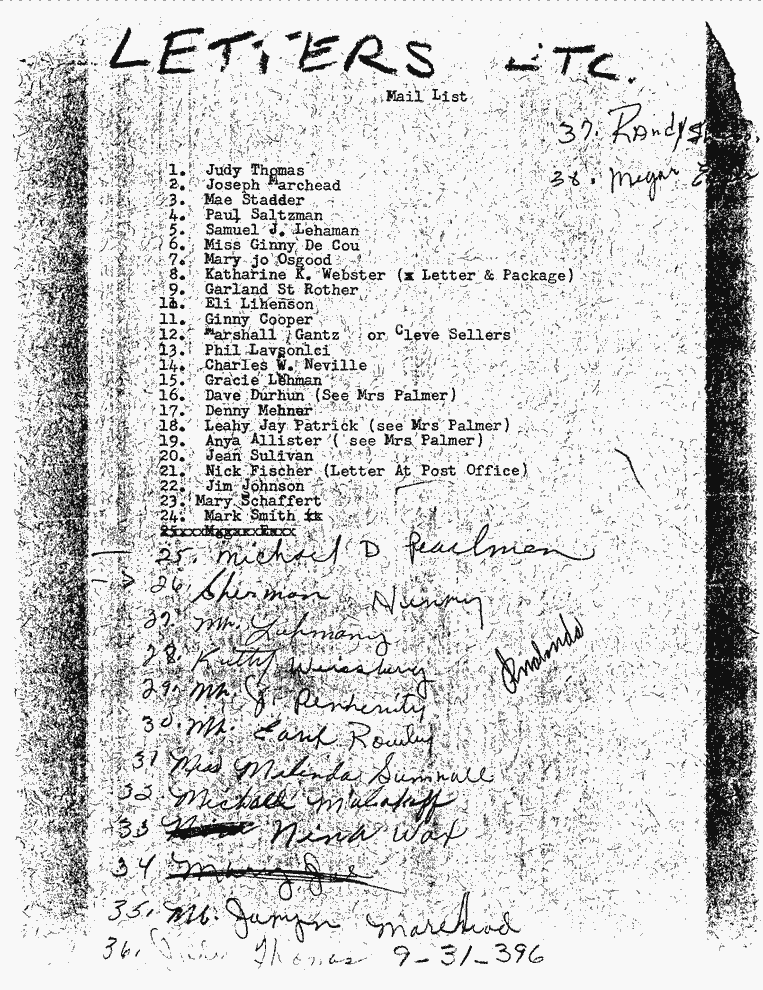 LETTERS ETC.
Mail List
37. Randy
38. Megar
1. Judy Thomas
2. Joseph Marchead
3. Mae Stadder
4. Paul Saltzman
5. Samuel J. Lehaman
6. Miss Ginny De Cou
7. Mary jo Osgood
8. Katharine K. Webster (x Letter & Package)
9. Garland St Rother
10. Eli Lihenson
11. Ginny Cooper
12. Marshall Gantz or Cleve Sellers
13. Phil Lavsonlci
14. Charles W. Neville
15. Gracie Lehman
16. Dave Durhun (See Mrs Palmer)
17. Denny Mehner
18. Leahy Jay Patrick (see Mrs Palmer)
19. Anya Allister ( see Mrs Palmer)
20. Jean Sulivan
21. Nick Fischer (Letter At Post Office)
22. Jim Johnson
23. Mary Schaffert
24. Mark Smith xx
25. Michael D Pearlman
26. Sherman
27. Mr.
28. Weissburg
29. Mr. J.
30. Mr. Earl Rowley
31 Miss Malinda Sumnall
32. Michael
33 Nina Wax
34 Mary Jae
35. Mr. Marchead
36. Thomas 9-31-396